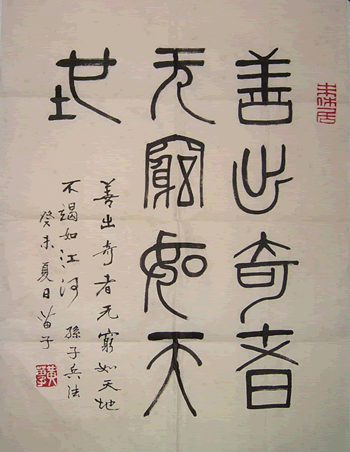 善出奇者
无窮如天
地
善出奇者无窮如天地
不竭如江河 孫子兵法
癸未夏日苗子